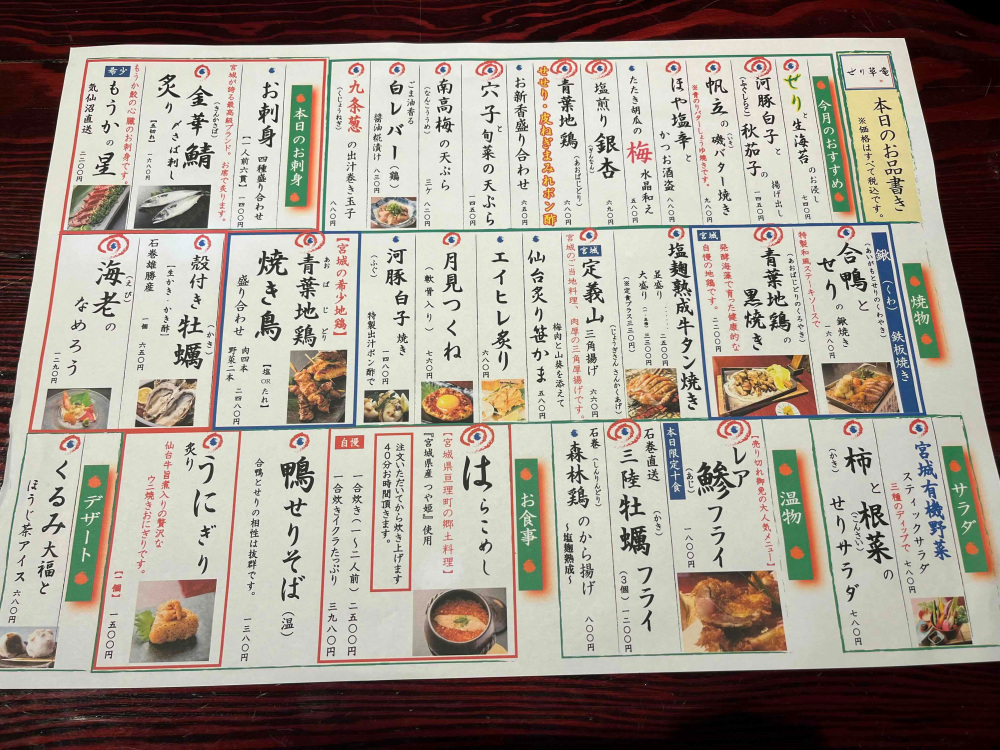 せり草庵
本日のお品書き
※価格はすべて税込です。
今月のおすすめ
せりと生海苔のお浸し
七四〇円
河豚白子と
(ふぐしらこ)
秋茄子の
揚げ出し
一四五〇円
帆立の磯バター焼き
(いそ)
九八〇円
ほや塩辛と
かつお酒盗
八八〇円
たたき胡瓜の梅水晶和え
五八〇円
塩煎り
銀杏
(ぎんなん)
六八〇円
青葉地鶏
(あおばじどり)
せせり・皮ねぎまみれポン酢
八八〇円
お新香盛り合わせ
六五〇円
穴子と旬菜の天ぷら
一四五〇円
南高梅の天ぷら
(なんこううめ)
三ケ 八二〇円
白レバー(鶏)
ごま油香る
醤油糀漬け
八二〇円
九条葱の出汁巻き玉子
(くじょうねぎ)
八八〇円
本日のお刺身
お刺身
四種盛り合わせ
【一人前六貫】
一四〇〇円
宮城が誇る最高級ブランド。お席で炙ります。
金華鯖
(きんかさば)
炙り〆さば刺し
【五切れ】
一六八〇円
もうか鮫の心臓のお刺身です。
希少
もうかの星
気仙沼直送
一二〇〇円
焼物
鍬(くわ)鉄板焼き
合鴨と
(あいがもとせりのくわやき)
せりの鍬焼き
特製和風ステーキソースで
一六八〇円
青葉地鶏の
(あおばじどりのくろやき)
黒焼き
宮城
発酵海藻で育った健康的な
自慢の地鶏です。
一二八〇円
塩麹熟成牛タン焼き
並盛り
二二〇〇円
大盛り
三三〇〇円
※定食プラス三五〇円
宮城
定義山三角揚げ
(じょうぎさんさんかくあげ)
六六〇円
宮城のご当地料理、肉厚の三角厚揚げです。
仙台炙り笹かま
梅肉と山葵を添えて
五八〇円
エイヒレ炙り
六八〇円
月見つくね
(軟骨入り)
七六〇円
河豚白子焼き
(ふぐ)
特製出汁ポン酢で
一四八〇円
【宮城の希少地鶏】
青葉地鶏
あおばじどり
焼き鳥
【塩 OR たれ】
盛り合わせ
肉四本
野菜二本
二四八〇円
殻付き牡蠣
(かき)
(生かき、かき酢)
石巻雄勝産
一個
六五〇円
海老の
(えび)
なめろう
一二九〇円
サラダ
宮城有機野菜
スティックサラダ
三種のディップで
七八〇円
柿と根菜の
(かき)
(こんさい)
せりサラダ
七八〇円
温物
【売り切れ御免の大人気メニュー】
レア
鯵フライ
(あじ)
八〇〇円
本日限定十食
石巻直送
三陸牡蠣フライ
(かき)
(3個)
一二〇〇円
石巻
森林鶏のから揚げ
(しんりんどり)
～塩麹熟成～
八〇〇円
お食事
はらこめし
【宮城県亘理町の郷土料理】
『宮城県産つや姫』使用
注文いただいてから炊き上げます
40分お時間頂きます。
自慢
一合炊き(一～二人前)
二五〇〇円
一合炊きイクラたっぷり
三九八〇円
鴨せりそば(温)
合鴨とせりの相性は抜群です。
一三八〇円
炙り
うにぎり
仙台牛旨煮入りの贅沢な
ウニ焼きおにぎりです。
【一個】
一五〇〇円
デザート
くるみ大福と
ほうじ茶アイス
六八〇円